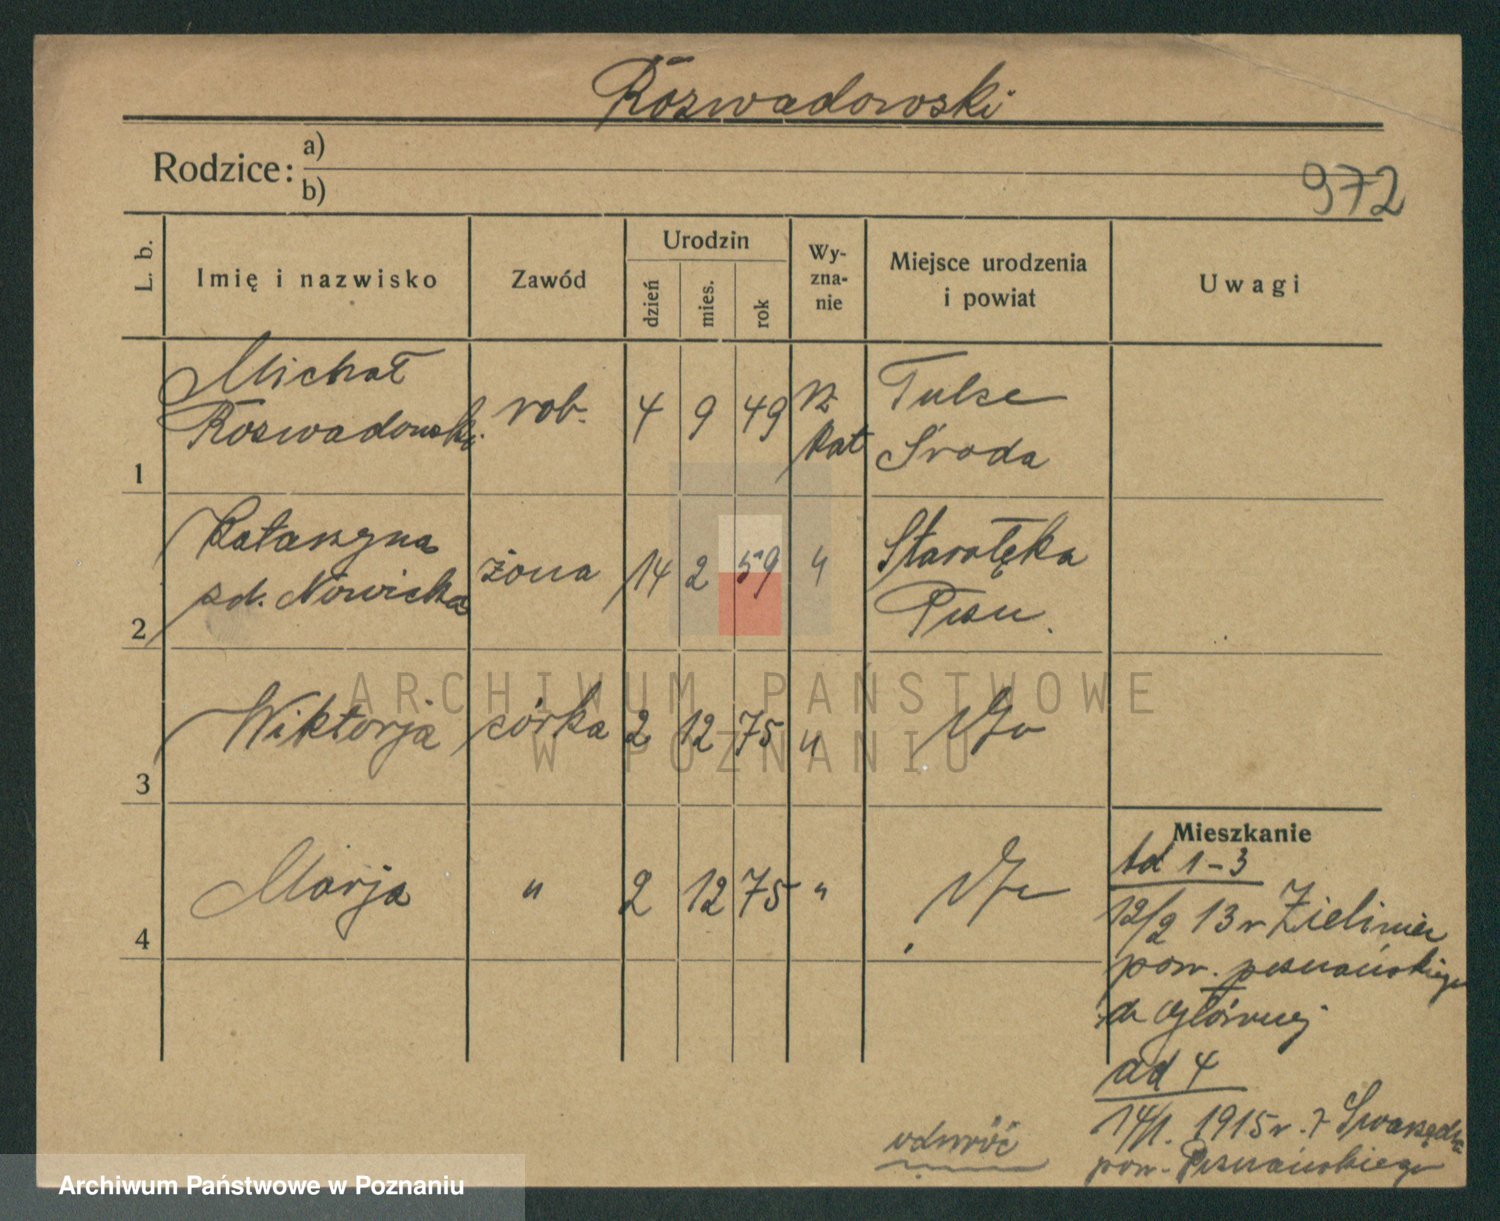 Rozwadowski
Rodzice: a)
b)
972
L. b.
Imię i nazwisko
Zawód
Urodzin
dzień
mies.
rok
Wy-
zna-
nie
Miejsce urodzenia
i powiat
Uwagi
1
Michał
Rozwadowski
rob.
4 9 49
rz
kat
Tulce
Środa
2
Katarzyna
zd. Nowicka
żona
14 2 59 "
Starołęka
Pozn.
3
Wiktorja
córka
2 12 75 "
4
Marja
"
2 12 75 "
Mieszkanie
ad 1-3
12/2 13 r Zieliniec
pow. poznańskiego
do Głównej
ad 4
14/1. 1915 r. z Swarzędza
pow. Poznańskiego
odwróć
ARCHIWUM PAŃSTWOWE
W POZNANIU
Archiwum Państwowe w Poznaniu